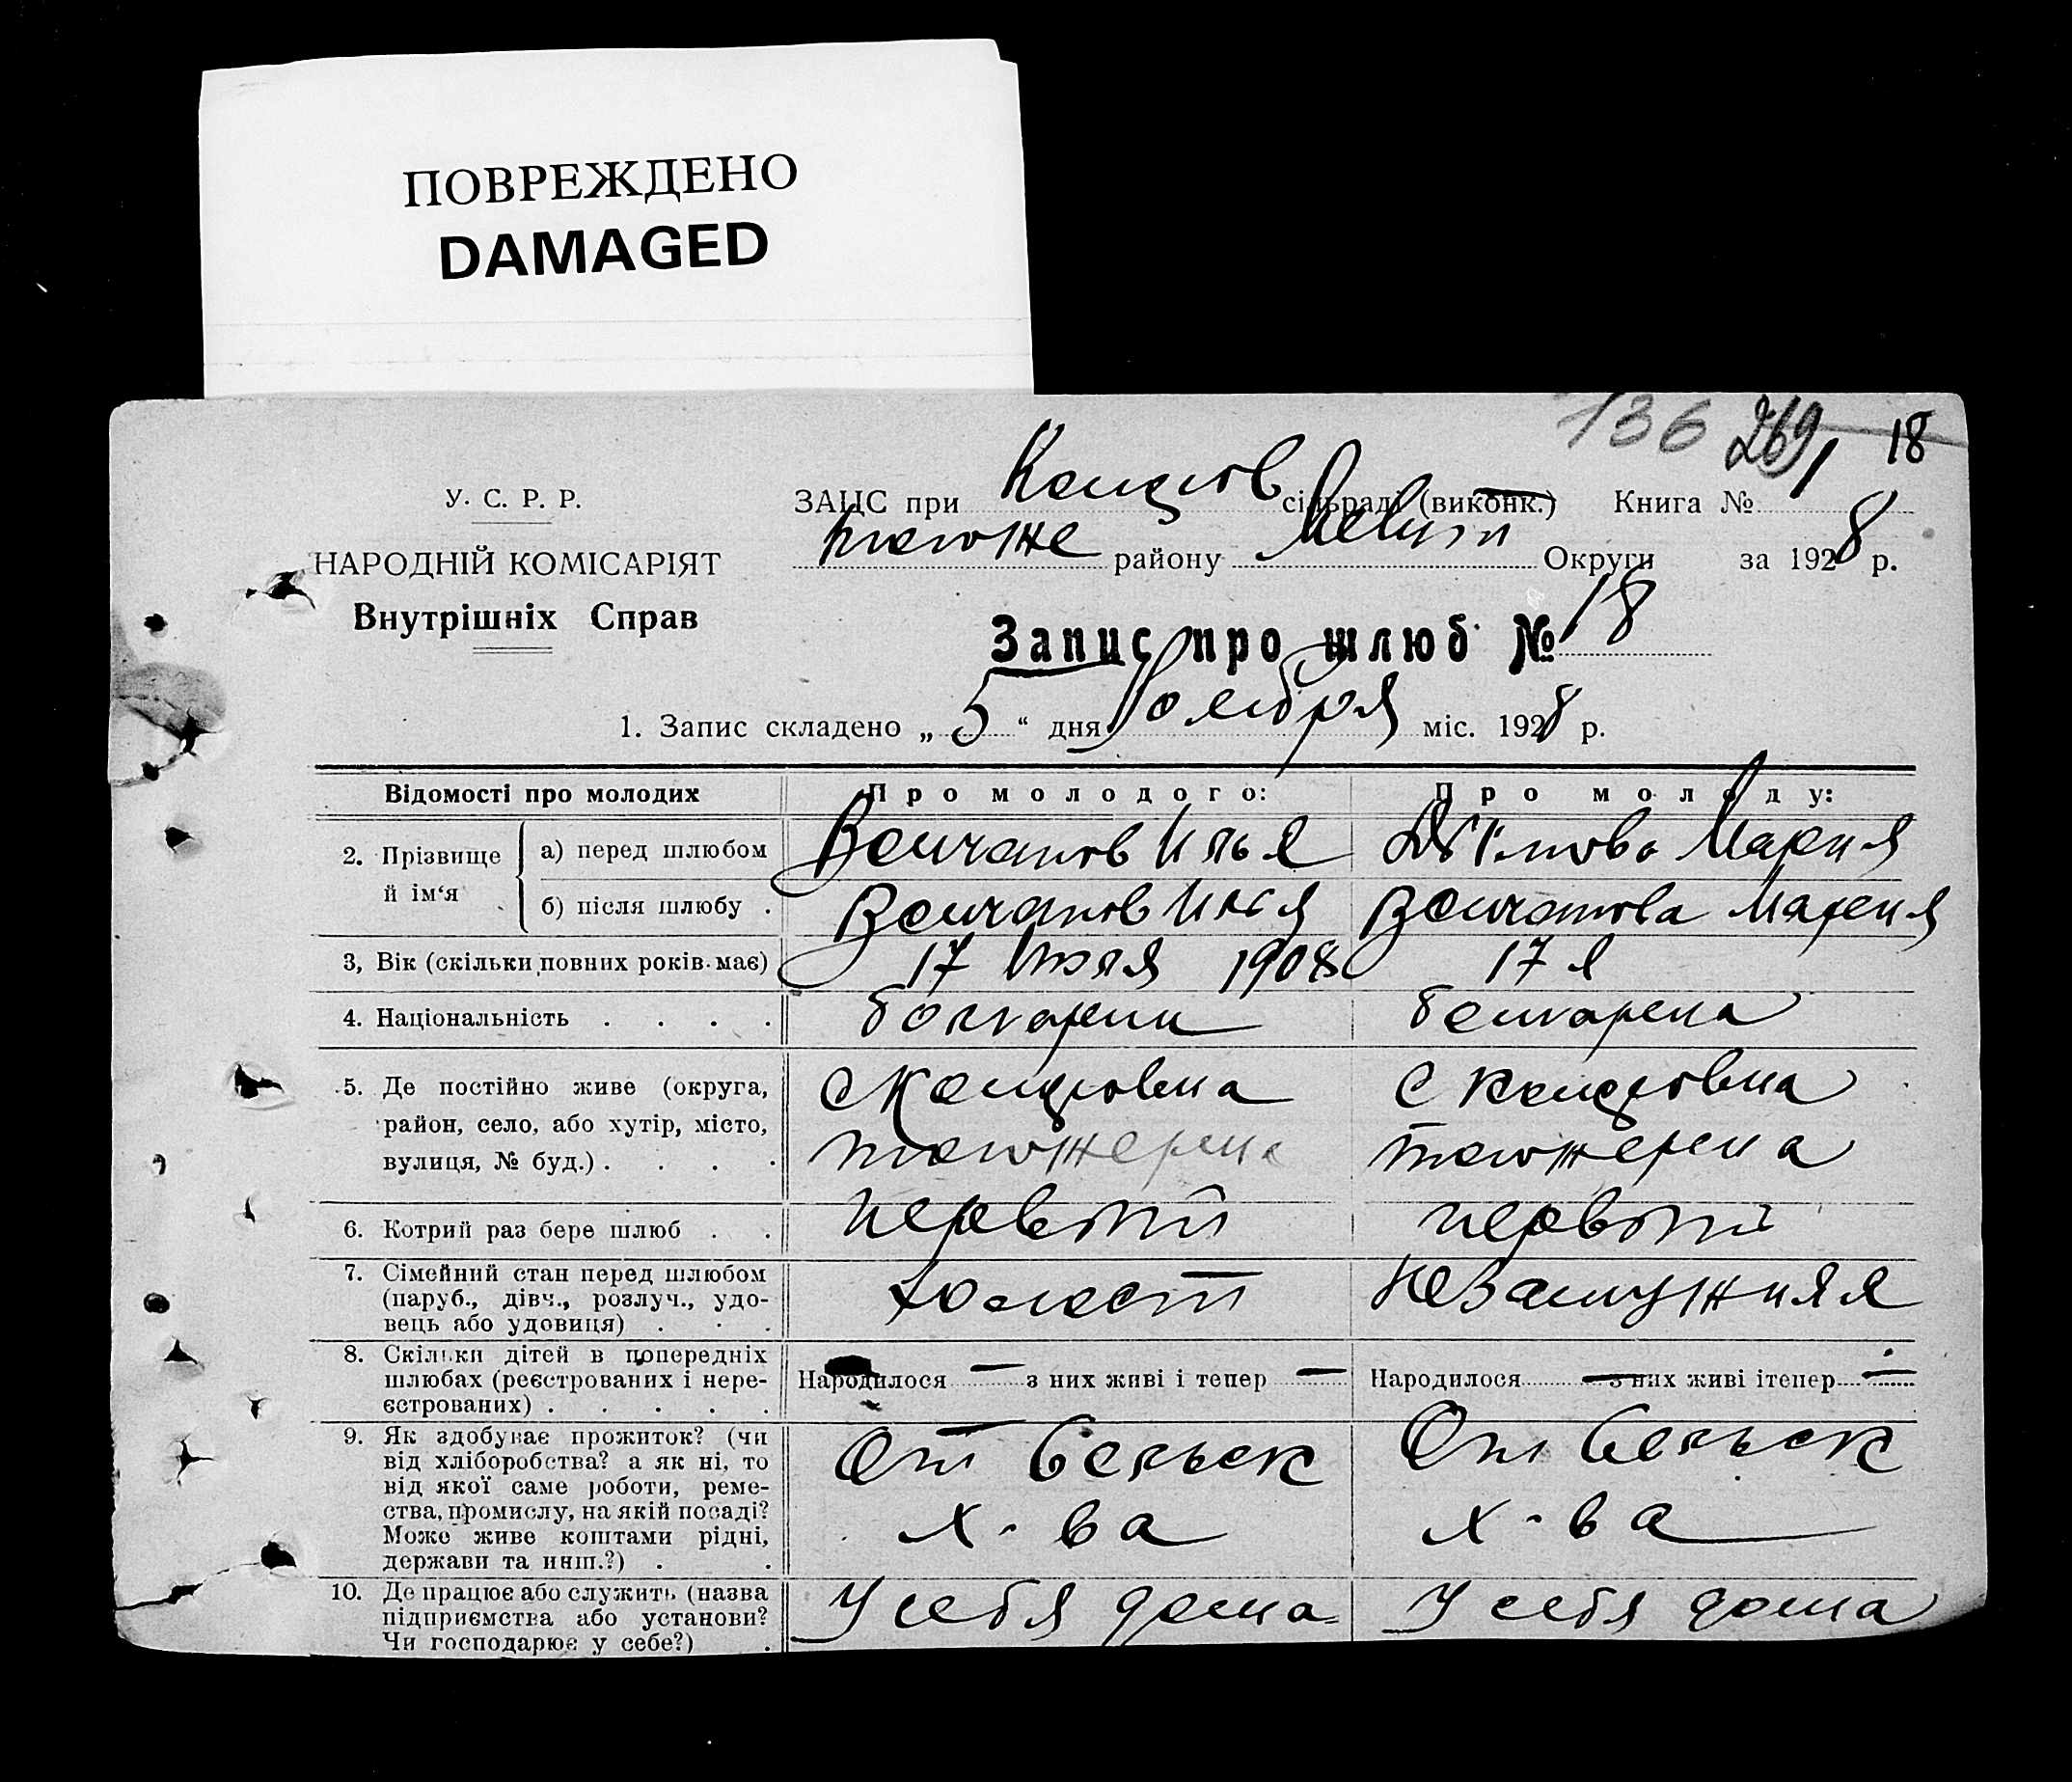 ПОВРЕЖДЕНО
DAMAGED
136 269 18
У. С. Р. Р.
НАРОДНІЙ КОМІСАРІЯТ
Внутрішніх Справ
ЗАЦС при сільраді (виконк.) Книга № 1
району Меліт Округи за 1928 р.
Запис про шлюб № 18
1. Запис складено „ 5 “ дня Ноября міс. 1928 р.
Відомості про молодих
Про молодого:
Про молоду:
2. Прізвище й ім‘я
а) перед шлюбом
Волчанов Илья
Мария
б) після шлюбу .
Волчанов Илья
Волчанова Мария
3, Вік (скільки повних років має)
17 Июля 1908
17 л
4. Національність . . . .
болгарин
болгарка
5. Де постійно живе (округа,
район, село, або хутір, місто,
вулиця, № буд.) . . . .
6. Котрий раз бере шлюб . .
первый
первый
7. Сімейний стан перед шлюбом
(паруб., дівч., розлуч., удо-
вець або удовиця) . . .
холост
незамужняя
8. Скільки дітей в попередніх
шлюбах (реєстрованих і нере-
єстрованих) . . . . .
Народилося — з них живі і тепер —
Народилося — з них живі ітепер —
9. Як здобуває прожиток? (чи
від хліборобства? а як ні, то
від якої саме роботи, реме-
ства, промислу, на якій посаді?
Може живе коштами рідні,
держави та инш.?) . .
От сельск
х-ва
От сельск
х-ва
10. Де працює або служить (назва
підприємства або установи?
Чи господарює у себе?) .
У себя дома
У себя дома